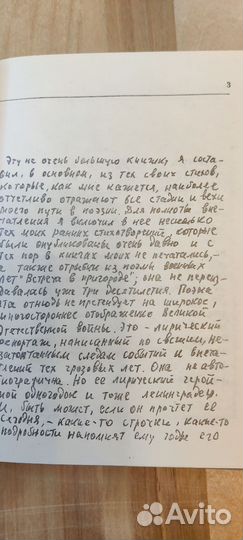 3
Эту не очень большую книжку я соста-
вил, в основном, из тех своих стихов,
которые, как мне кажется, наиболее
отчетливо отражают все стадии и вехи
моего пути в поэзии. Для полноты впе-
чатления я включил в нее несколько
тех моих ранних стихотворений, которые
были опубликованы очень давно и с
тех пор в книгах моих не печатались,
а также отрывки из поэмы военных
лет "Встреча в пригороде"; она не переиз-
давалась уже три десятилетия. Поэма
эта отнюдь не претендует на широкое,
многостороннее отображение Великой
Отечественной войны. Это - лирический
репортаж, написанный по свежим, не-
затоптанным следам событий и впеча-
тлений тех грозовых лет. Она не авто-
биографична. Но ее лирический герой -
мой одногодок и тоже ленинградец.
И, быть может, если он прочтет ее
сегодня, - какие-то строчки, какие-то
подробности напомнят ему годы его
Avito